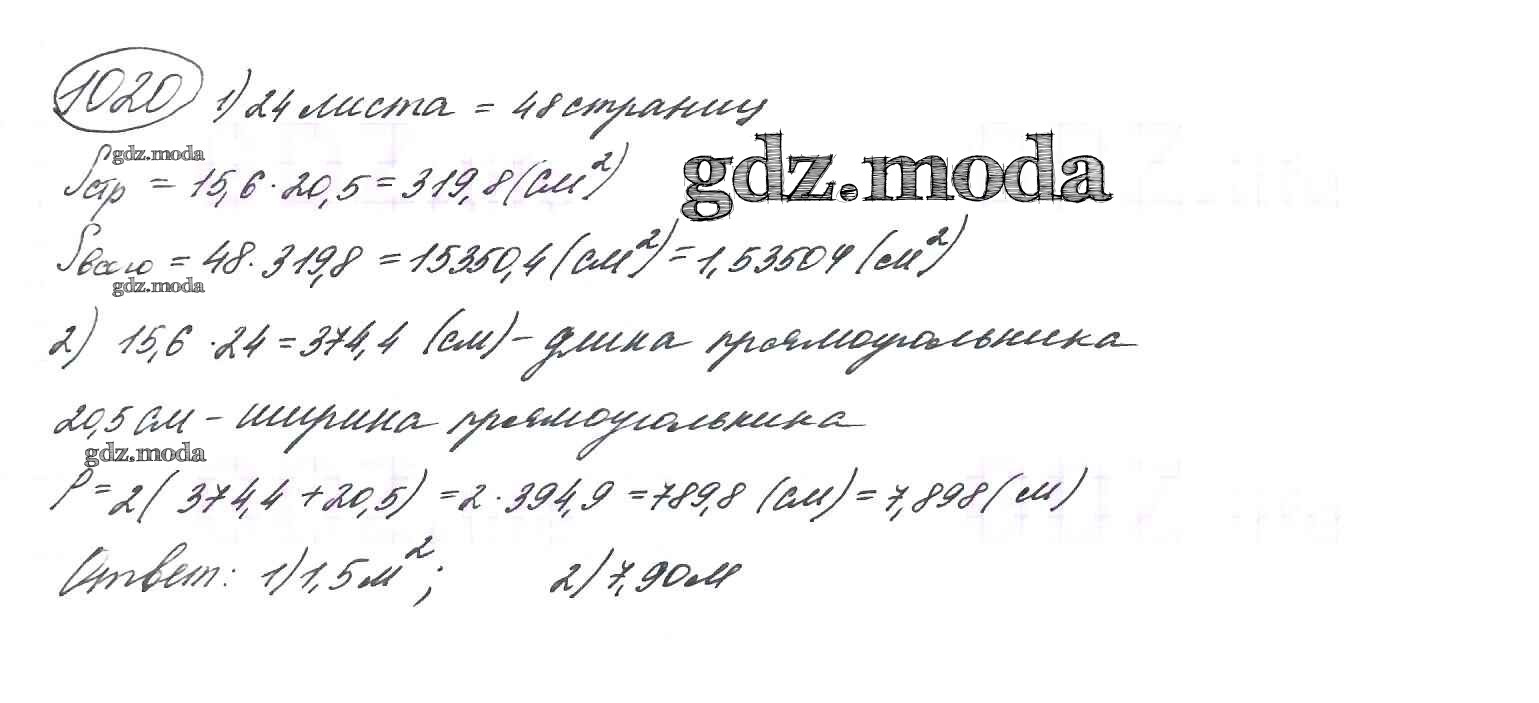 1020 1) 24 листа = 48 страниц
gdz.moda
gdz.moda
Sстр = 15,6 · 20,5 = 319,8 (см²)
Sвсего = 48 · 319,8 = 15350,4 (см²) = 1,53504 (м²)
gdz.moda
2) 15,6 · 24 = 374,4 (см) – длина прямоугольника
20,5 см – ширина прямоугольника
gdz.moda
P = 2( 374,4 + 20,5) = 2 · 394,9 = 789,8 (см) = 7,898 (м)
Ответ: 1) 1,5 м²; 2) 7,90 м